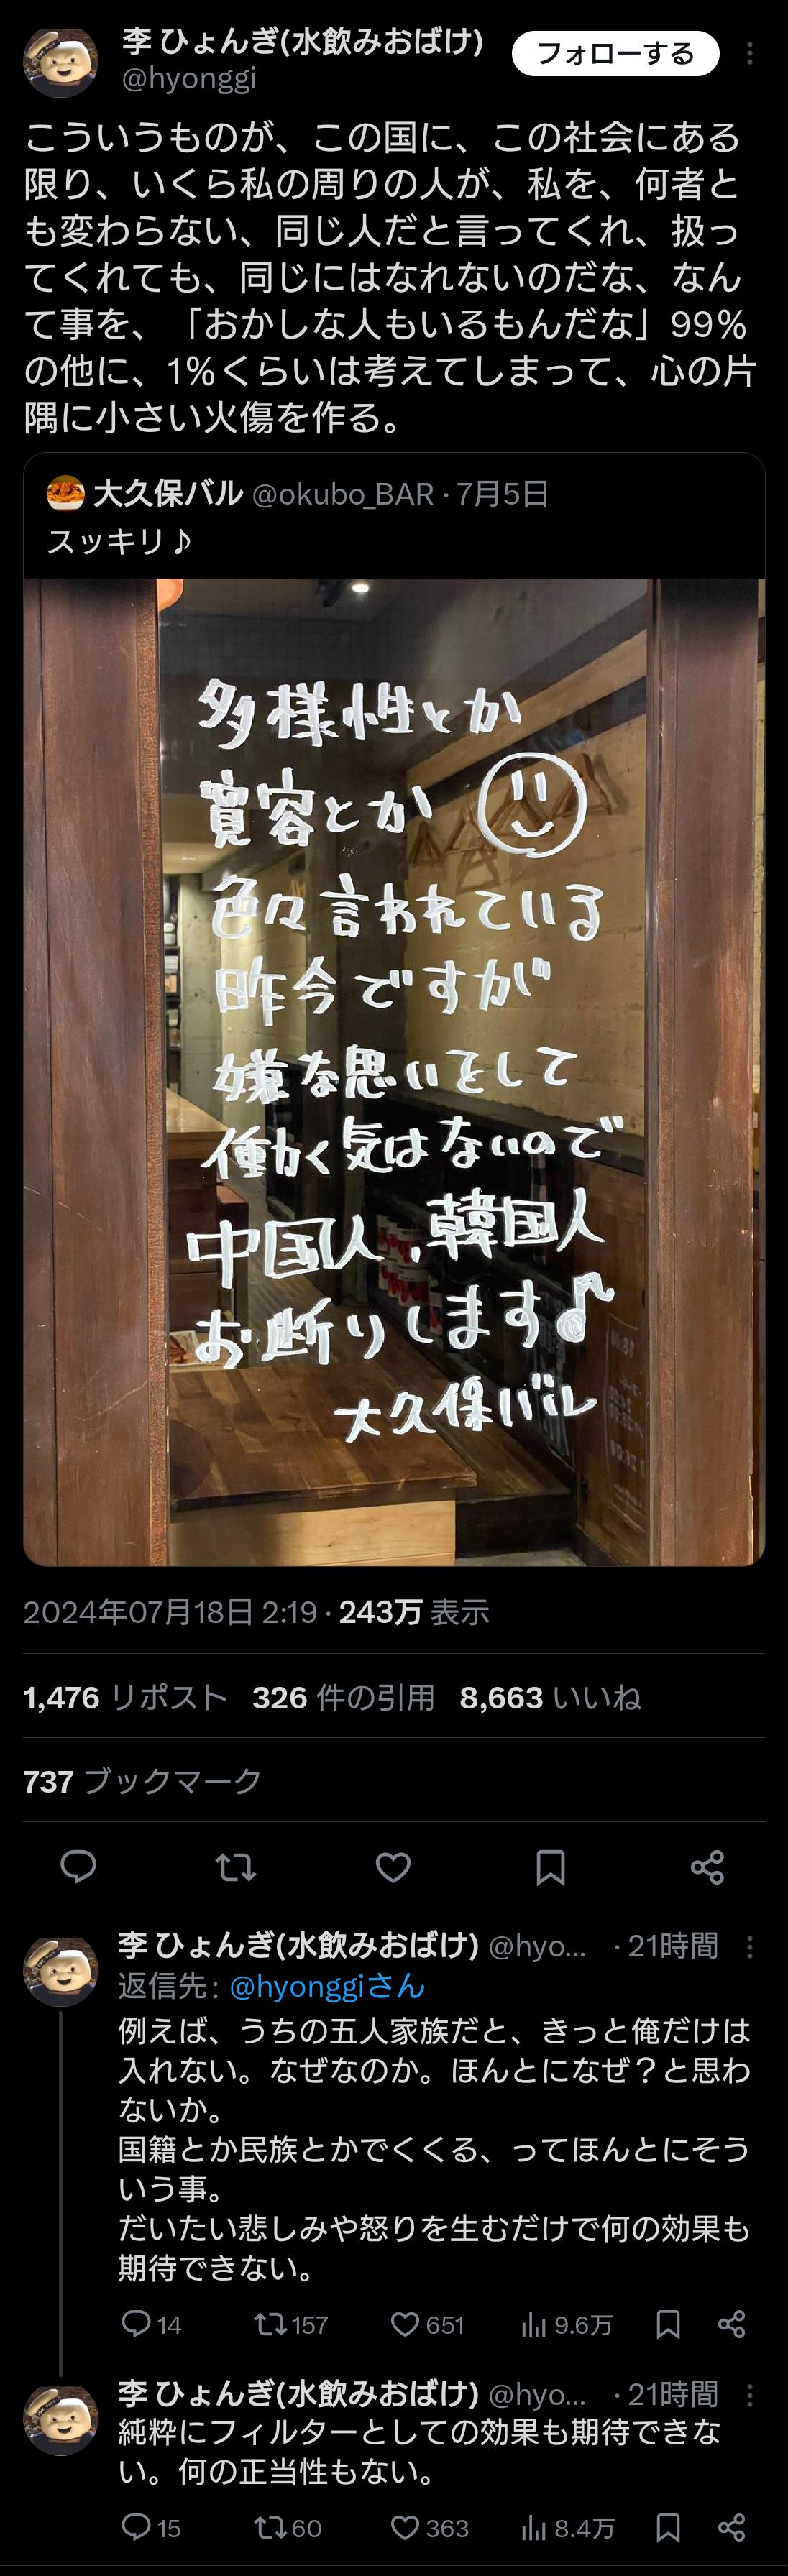 李 ひょんぎ(水飲みおばけ)
フォローする
@hyonggi
こういうものが、この国に、この社会にある
限り、いくら私の周りの人が、私を、何者と
も変わらない、同じ人だと言ってくれ、扱っ
てくれても、同じにはなれないのだな、なん
て事を、「おかしな人もいるもんだな」99%
の他に、1%くらいは考えてしまって、心の片
隅に小さい火傷を作る。
大久保バル @okubo_BAR · 7月5日
スッキリ♪
多様性とか
寛容とか
色々言われている
昨今ですが
嫌な思いをして
働く気はないので
中国人、韓国人
お断りします♪
大久保バル
2024年07月18日 2:19 · 243万 表示
1,476 リポスト 326 件の引用 8,663 いいね
737 ブックマーク
李 ひょんぎ(水飲みおばけ) @hyo... · 21時間
返信先: @hyonggiさん
例えば、うちの五人家族だと、きっと俺だけは
入れない。なぜなのか。ほんとになぜ？と思わ
ないか。
国籍とか民族とかでくくる、ってほんとにそう
いう事。
だいたい悲しみや怒りを生むだけで何の効果も
期待できない。
14 157 651 9.6万
李 ひょんぎ(水飲みおばけ) @hyo... · 21時間
純粋にフィルターとしての効果も期待できな
い。何の正当性もない。
15 60 363 8.4万